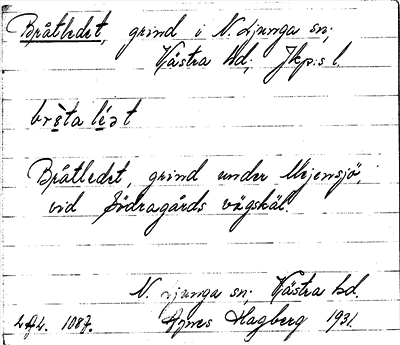 Bråtledet, grind i N. Ljunga sn;
Västra hd; Jkp:s l.
brɛ̀ta lèət
Bråtledet, grind under Mejensjö,
vid Södragårds vägskäl.
N. Ljunga sn; Västra hd.
1087. Agnes Hagberg 1931.